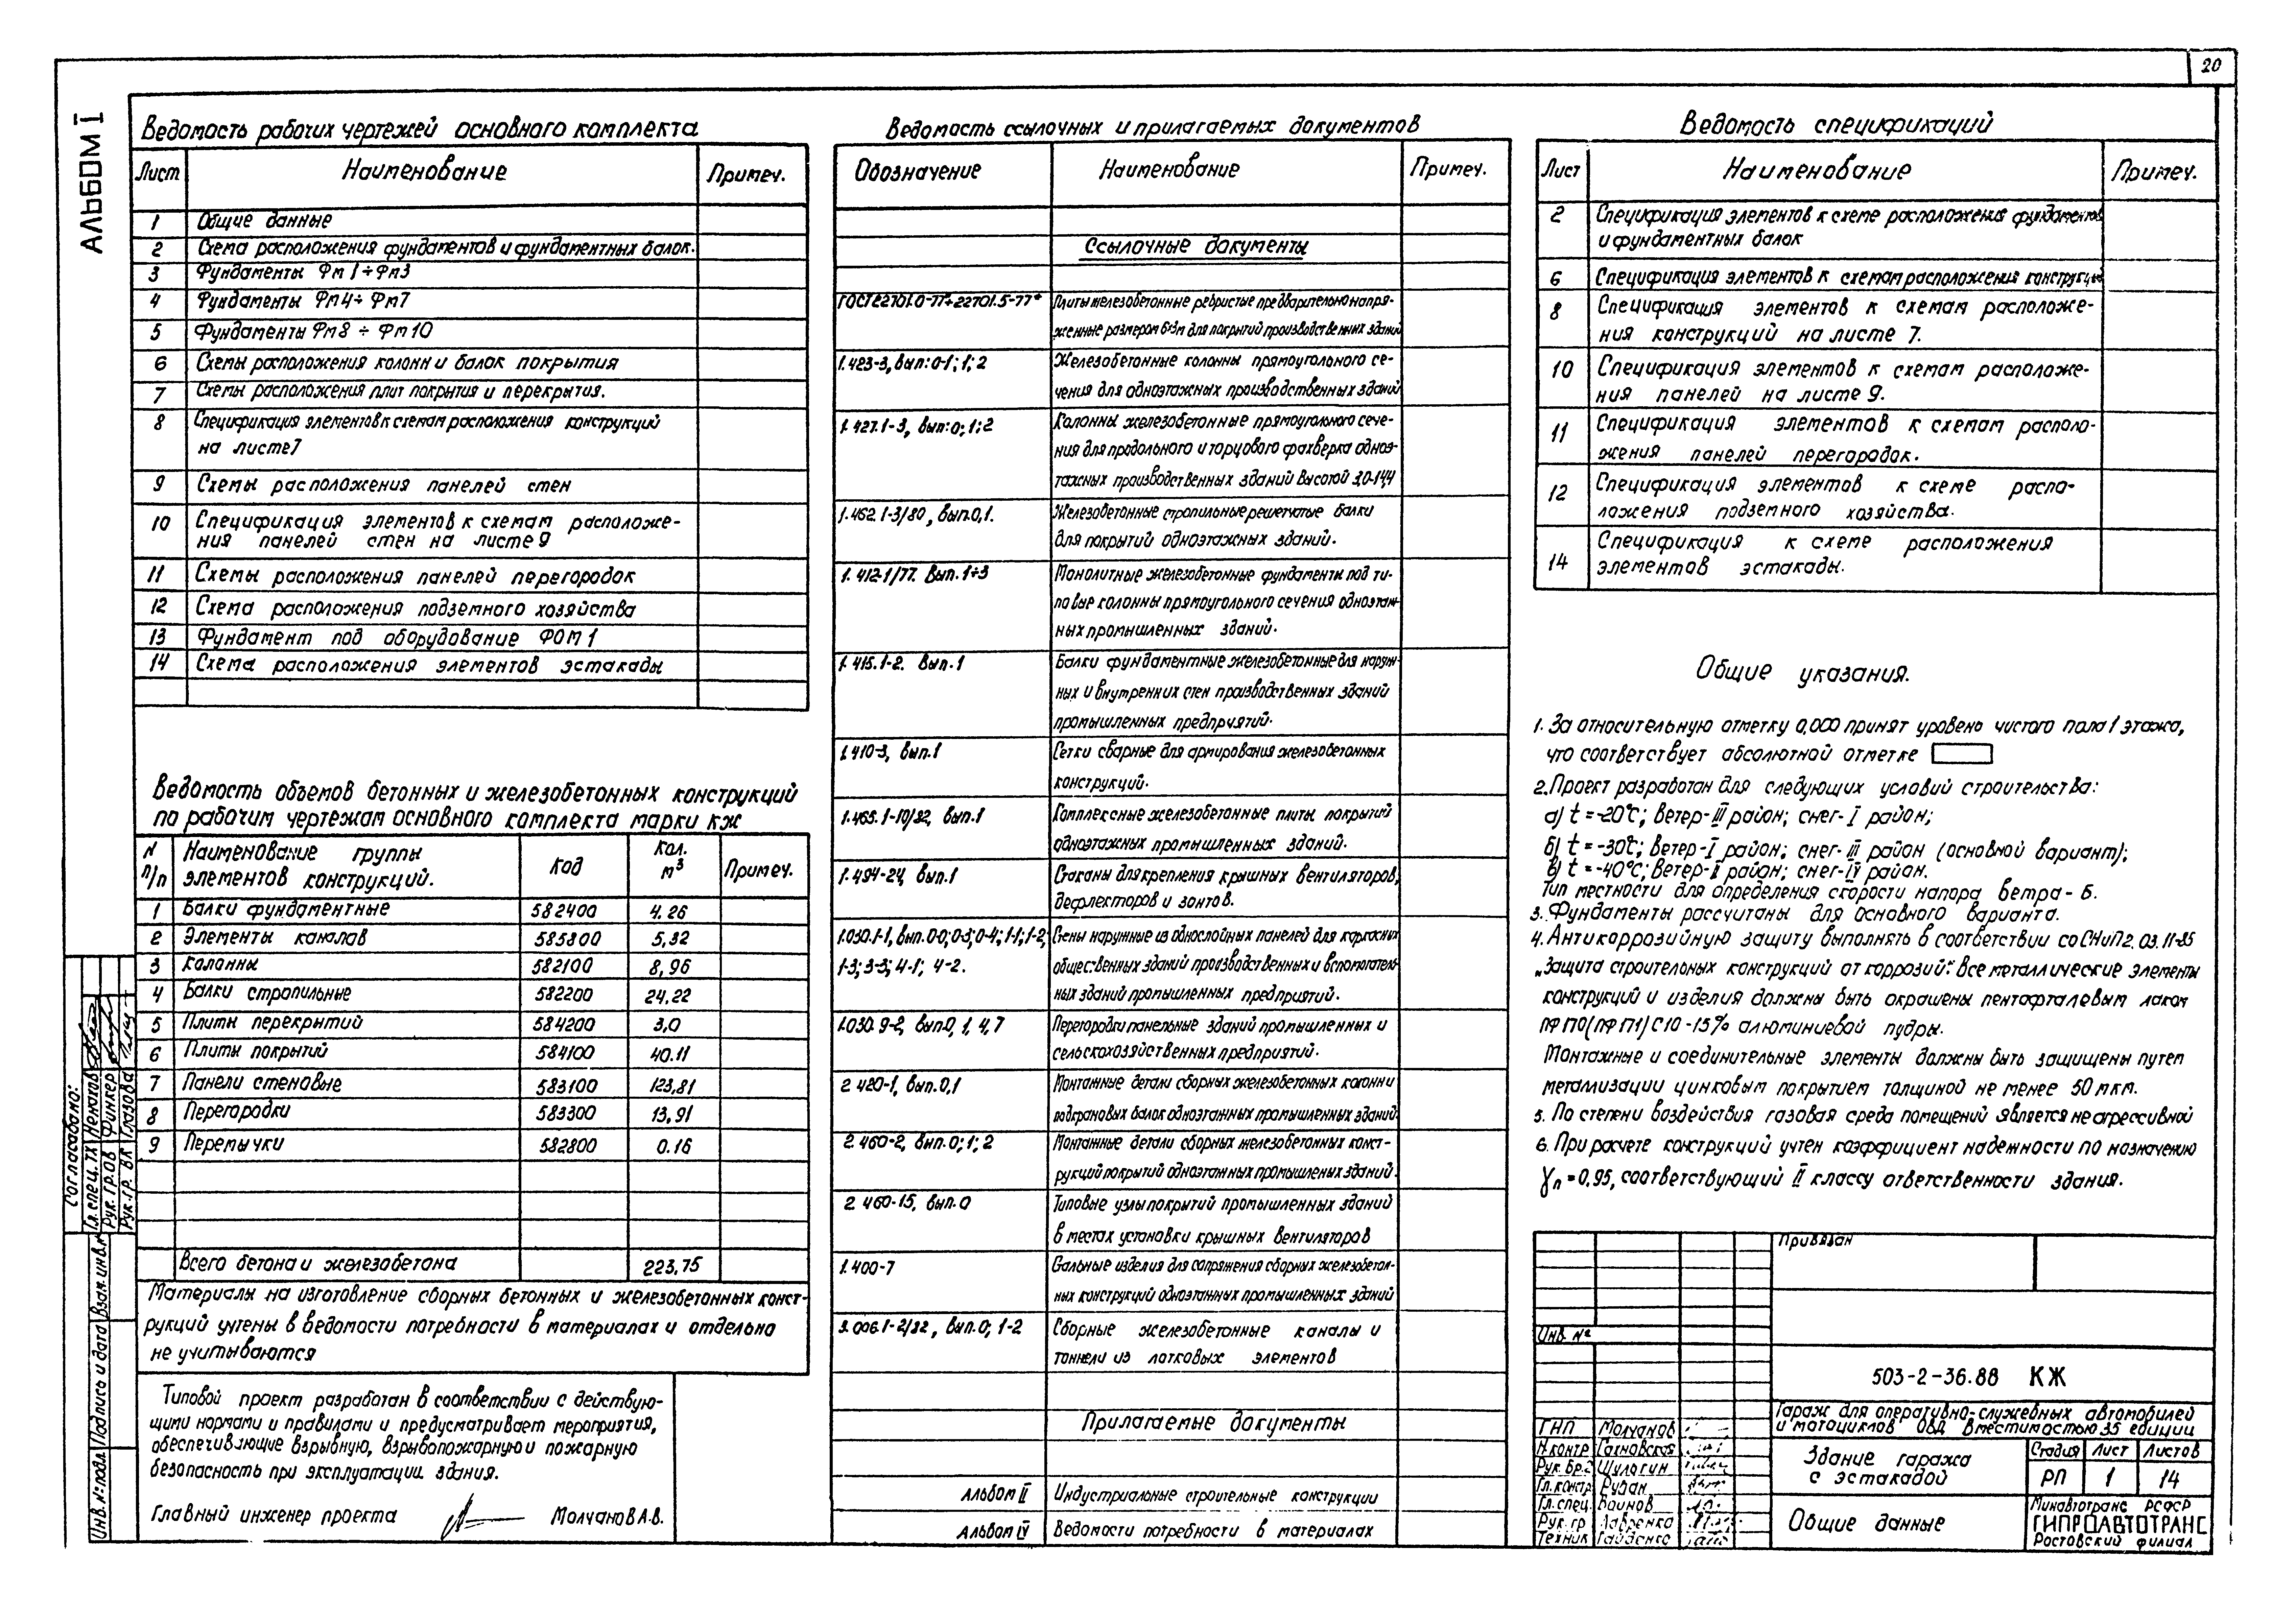 20
АЛЬБОМ I
Ведомость рабочих чертежей основного комплекта
Лист Наименование Примеч.
1 Общие данные
2 Схема расположения фундаментов и фундаментных балок.
3 Фундаменты Фм 1÷Фм3
4 Фундаменты Фм4÷Фм7
5 Фундаменты Фм8 ÷ Фм10
6 Схемы расположения колонн и балок покрытия
7 Схемы расположения плит покрытия и перекрытия.
8 Спецификация элементов к схемам расположения конструкций
на листе 7
9 Схемы расположения панелей стен
10 Спецификация элементов к схемам расположе-
ния панелей стен на листе 9
11 Схемы расположения панелей перегородок
12 Схема расположения подземного хозяйства
13 Фундамент под оборудование ФОМ1
14 Схема расположения элементов эстакады
Ведомость объемов бетонных и железобетонных конструкций
по рабочим чертежам основного комплекта марки КЖ
N п/п Наименование группы элементов конструкций. Код Кол. м³ Примеч.
1 Балки фундаментные 582400 4.26
2 Элементы каналов 585800 5,32
3 Колонны 582100 8,96
4 Балки стропильные 582200 24,22
5 Плиты перекрытий 584200 3,0
6 Плиты покрытий 584100 40.11
7 Панели стеновые 583100 123,81
8 Перегородки 583300 13,91
9 Перемычки 582800 0.16
Всего бетона и железобетона 223,75
Материалы на изготовление сборных бетонных и железобетонных конст-
рукций учтены в ведомости потребности в материалах и отдельно
не учитываются
Типовой проект разработан в соответствии с действую-
щими нормами и правилами и предусматривает мероприятия,
обеспечивающие взрывную, взрывопожарную и пожарную
безопасность при эксплуатации здания.
Главный инженер проекта Молчанов А.В.
Согласовано:
Гл. спец. ТХ Ненахов
Рук. гр. ОВ Финкер
Рук. гр. ВК Глазова
Инв. № подл. Подпись и дата Взам. инв. №
Ведомость ссылочных и прилагаемых документов
Обозначение Наименование Примеч.
Ссылочные документы
ГОСТ 22701.0-77÷22701.5-77* Плиты железобетонные ребристые предварительно напря-
женные размером 6×3м для покрытий производственных зданий
1.423-3, вып:0-1; 1; 2 Железобетонные колонны прямоугольного се-
чения для одноэтажных производственных зданий
1.427.1-3, вып:0; 1; 2 Колонны железобетонные прямоугольного сече-
ния для продольного и торцового фахверка одноэ-
тажных производственных зданий высотой 3,0-14,4
1.462.1-3/80, вып.0,1. Железобетонные стропильные решетчатые балки
для покрытий одноэтажных зданий.
1.412-1/77. Вып.1÷3 Монолитные железобетонные фундаменты под ти-
повые колонны прямоугольного сечения одноэтаж-
ных промышленных зданий.
1.415.1-2. Вып.1 Балки фундаментные железобетонные для наруж-
ных и внутренних стен производственных зданий
промышленных предприятий.
1.410-3, вып.1 Сетки сварные для армирования железобетонных
конструкций.
1.465.1-10/82, вып.1 Комплексные железобетонные плиты покрытий
одноэтажных промышленных зданий.
1.494-24, вып.1 Стаканы для крепления крышных вентиляторов,
дефлекторов и зонтов.
1.030.1-1, вып. 0-0; 0-3; 0-4; 1-1; 1-2; Стены наружные из однослойных панелей для каркасных
1-3; 3-3; 4-1; 4-2. общественных зданий производственных и вспомогатель-
ных зданий промышленных предприятий.
1.030.9-2, вып.0, 1, 4, 7 Перегородки панельные зданий промышленных и
сельскохозяйственных предприятий.
2.420-1, вып.0,1 Монтажные детали сборных железобетонных колонн и
подкрановых балок одноэтажных промышленных зданий.
2.460-2, вып.0; 1; 2 Монтажные детали сборных железобетонных конст-
рукций покрытий одноэтажных промышленых зданий.
2.460-15, вып.0 Типовые узлы покрытий промышленных зданий
в местах установки крышных вентиляторов
1.400-7 Стальные изделия для сопряжения сборных железобетон-
ных конструкций одноэтажных промышленных зданий
3.006.1-2/82, вып.0; 1-2 Сборные железобетонные каналы и
тоннели из лотковых элементов
Прилагаемые документы
Альбом II Индустриальные строительные конструкции
Альбом IV Ведомости потребности в материалах
Ведомость спецификаций
Лист Наименование Примеч.
2 Спецификация элементов к схеме расположения фундаментов
и фундаментных балок
6 Спецификация элементов к схемам расположения конструкций
8 Спецификация элементов к схемам расположе-
ния конструкций на листе 7.
10 Спецификация элементов к схемам расположе-
ния панелей на листе 9.
11 Спецификация элементов к схемам располо-
жения панелей перегородок.
12 Спецификация элементов к схеме распо-
ложения подземного хозяйства.
14 Спецификация к схеме расположения
элементов эстакады.
Общие указания.
1. За относительную отметку 0,000 принят уровень чистого пола 1 этажа,
что соответствует абсолютной отметке
2. Проект разработан для следующих условий строительства:
а) t = -20°С; Ветер-III район; снег-I район;
б) t = -30°С; Ветер-I район; снег-III район (основной вариант);
в) t = -40°С; Ветер-I район; снег-IV район.
Тип местности для определения скорости напора ветра - Б.
3. Фундаменты рассчитаны для основного варианта.
4. Антикоррозийную защиту выполнять в соответствии со СНиП 2.03.11-85
„Защита строительных конструкций от коррозий." Все металлические элементы
конструкций и изделия должны быть окрашены пентафталевым лаком
ПФ П0(ПФ П1) С 10-15% алюминиевой пудры.
Монтажные и соединительные элементы должны быть защищены путем
металлизации цинковым покрытием толщиной не менее 50 мкм.
5. По степени воздействия газовая среда помещений является неагрессивной
6. При расчете конструкций учтен коэффициент надежности по назначению
γn = 0,95, соответствующий II классу ответственности здания.
Привязан
Инв. №
503-2-36.88 КЖ
Гараж для оперативно-служебных автомобилей
и мотоциклов ОВД вместимостью 35 единиц
ГИП Молчанов
Н.контр Сахновская
Рук.бр. Шулягин
Гл.констр. Рудан
Гл.спец. Воинов
Рук.гр Лавренко
Техник Гайденко
Здание гаража
с эстакадой
Стадия Лист Листов
РП 1 14
Общие данные
Минавтотранс РСФСР
ГИПРОАВТОТРАНС
Ростовский филиал